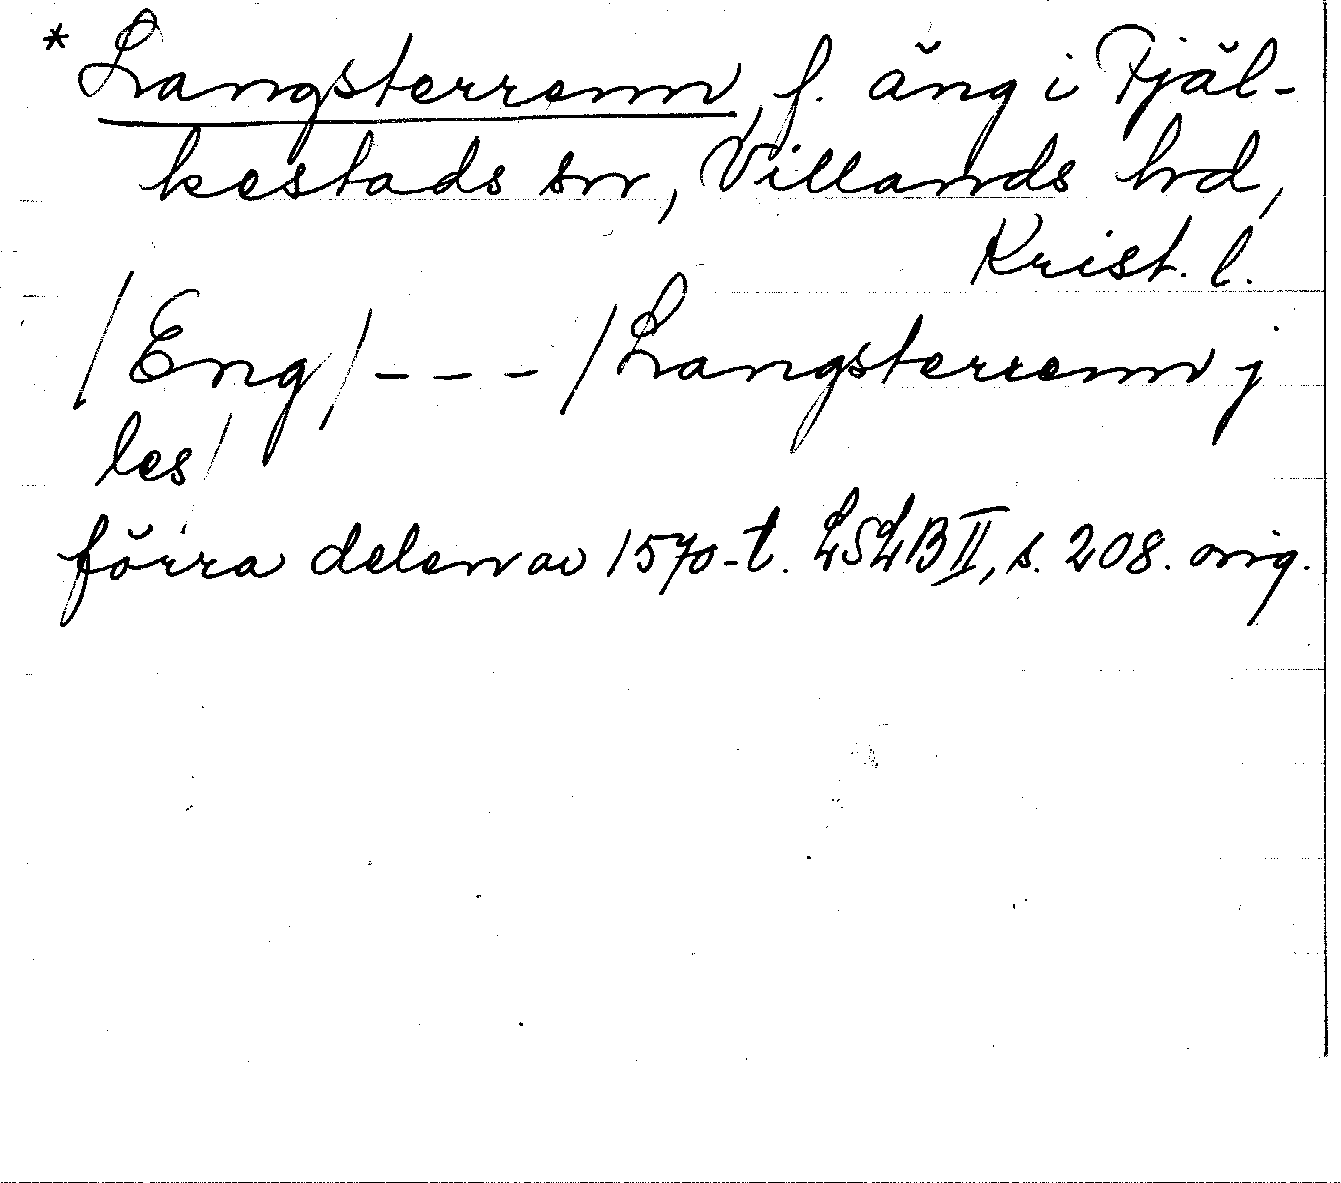 * Langsterrenn, f. äng i Fjäl-
kestads sn, Villands hd,
Krist. l.
/Eng/ - - - /Langsterrenn j
les/
förra delen av 1570-t. LSLB II, s. 208. orig.